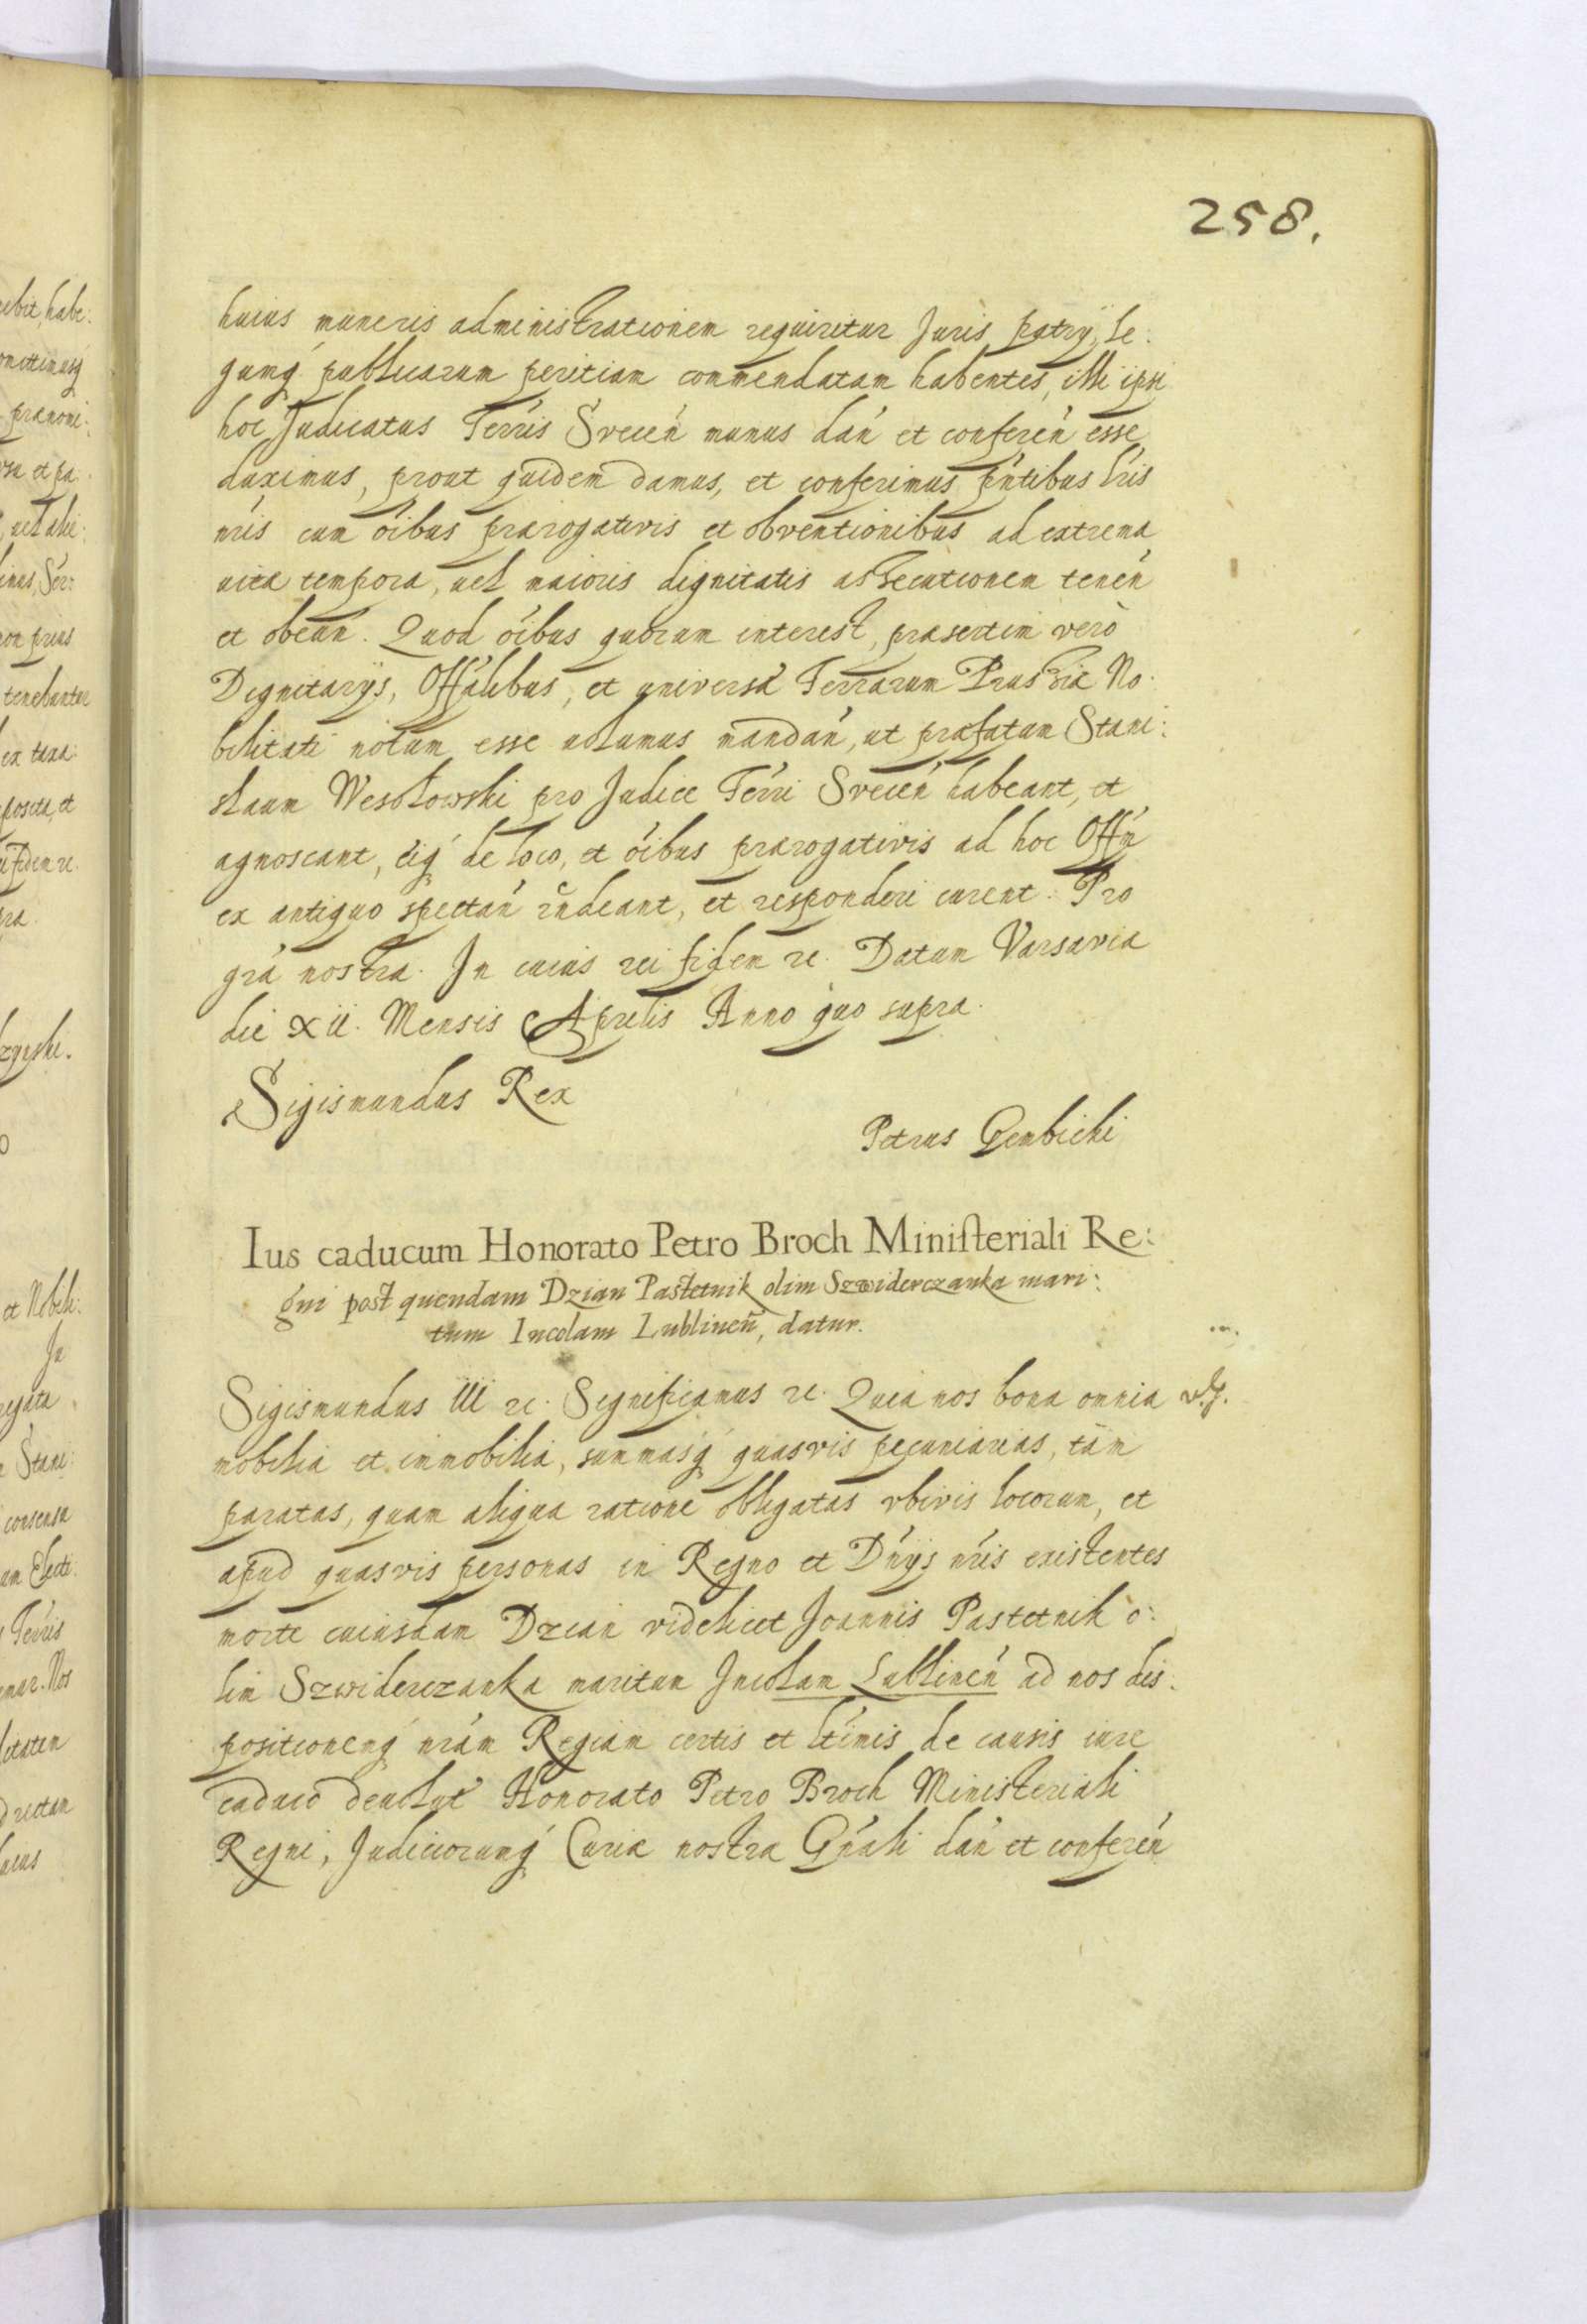 258.
huius muneris administrationem requiritur Juris patrij, le:
gumq́ publicarum peritiam commendatam habentes, illi ipsi
hoc Judicatus Terr̃is Svecen̄ munus dan̄ et conferen̄ esse
duximus, prout quidem damus, et conferimus pn̄tibus lr̃is
nr̃is cum oĩbus prærogativis et obventionibus ad extrema
uitæ tempora, uel maioris dignitatis assecutionem tenen̄
et obeun̄. Quod oĩbus quorum interest, præsertim verò
Dignitarijs, Offãlibus, et universæ Terrarum Prussiæ No:
bilitati notum esse uolumus mandan̄, ut præfatum Stani:
slaum Wesołowski pro Judice Terr̃i Svecen̄ habeant, et
agnoscant, eiq́ de loco, et oĩbus prærogativis ad hoc Offm̄
ex antiquo spectan̄ rñdeant, et responderi curent. Pro
grã nostra. In cuius rei fidem &c. Datum Varsaviæ
die XII. Mensis Aprilis Anno quo supra.
Sigismundus Rex
Petrus Gembicki
Ius caducum Honorato Petro Broch Ministeriali Re:
gni post quendam Dzian Pastetnik olim Szwiderczanka mari:
tum Incolam Lublinen̄, datur.
Sigismundus III &c. Significamus &c. Quia nos bona omnia
mobilia et immobilia, summasq́ quasvis pecuniarias, tàm
paratas, quam aliqua ratione obligatas vbivis locorum, et
apud quasvis personas in Regno et Dn̄ijs nr̃is existentes
morte cuiusdam Dzian videlicet Joannis Pastetnik o:
lim Szwiderczanka maritum Incolam Lublinen̄ ad nos dis:
positionemq́ nr̃am Regiam certis et ltĩmis de causis iure
caduco deuolut̃ Honorato Petro Broch Ministeriali
Regni, Judiciorumq́ Curiæ nostræ Gn̄ali dan̄ et conferen̄